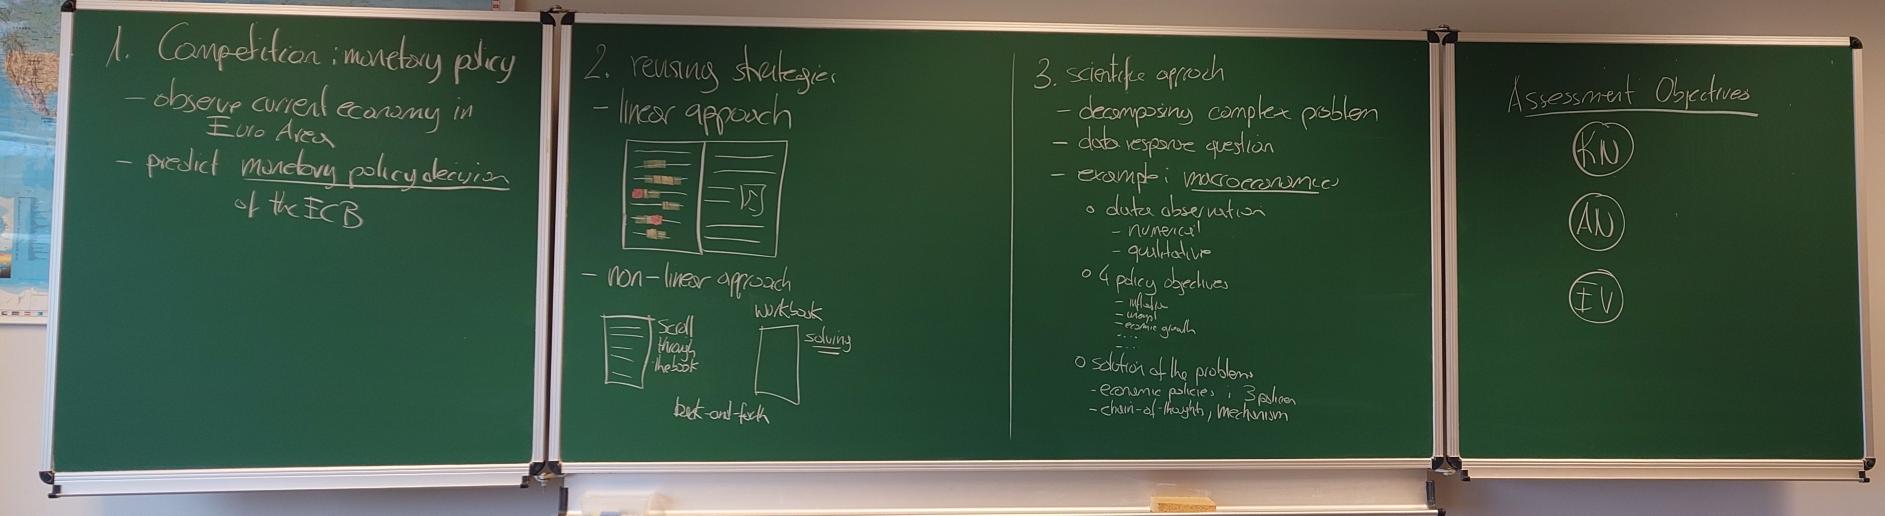 1. Competition : monetary policy
- observe current economy in
Euro Area
- predict monetary policy decision
of the ECB
2. reusing strategies
- linear approach
- non-linear approach
scroll
through
the book
workbook
solving
back-and-forth
3. scientific approach
- decomposing complex problem
- data response question
- example : macroeconomics
o data observation
- numerical
- qualitative
o 4 policy objectives
- inflation
- unempl
- economic growth
- ...
- ...
o solution of the problems
- economic policies : 3 policies
- chain-of-thoughts, mechanism
Assessment Objectives
KN
AN
EV